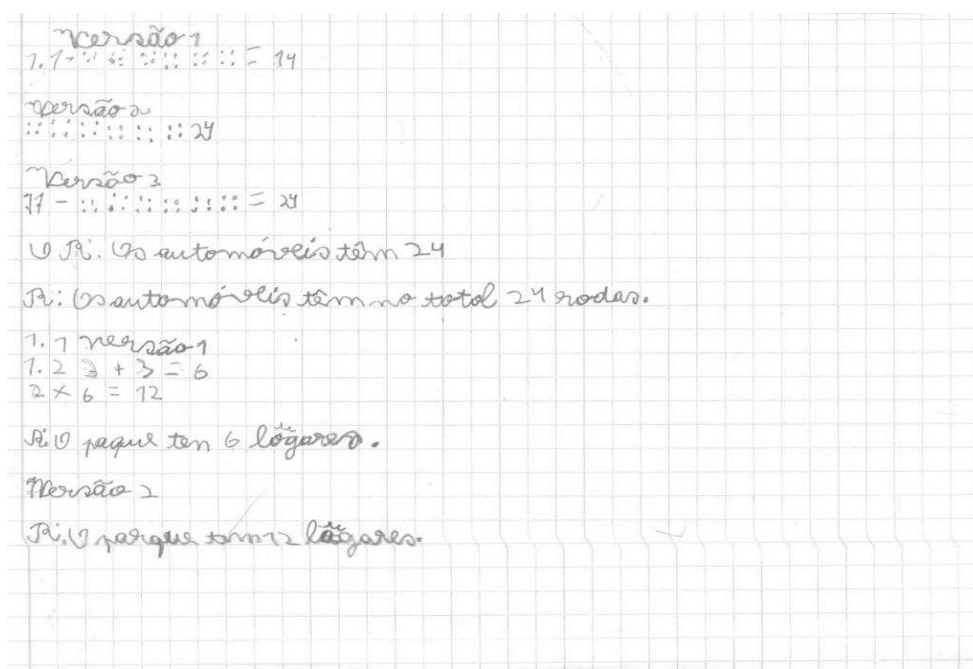 Versão 1
1.1- :: :: :: :: :: :: = 14
Versão 2
:: :: :: :: :: :: 24
Versão 3
11 - :: :: :: :: :: :: = 24
O R: Os automóveis têm 24
R: Os automóveis têm no total 24 rodas.
1.1 Versão 1
1.2 3 + 3 = 6
2 × 6 = 12
R: O paque ten 6 lugares.
Versão 2
R: O parque tem 12 lugares.